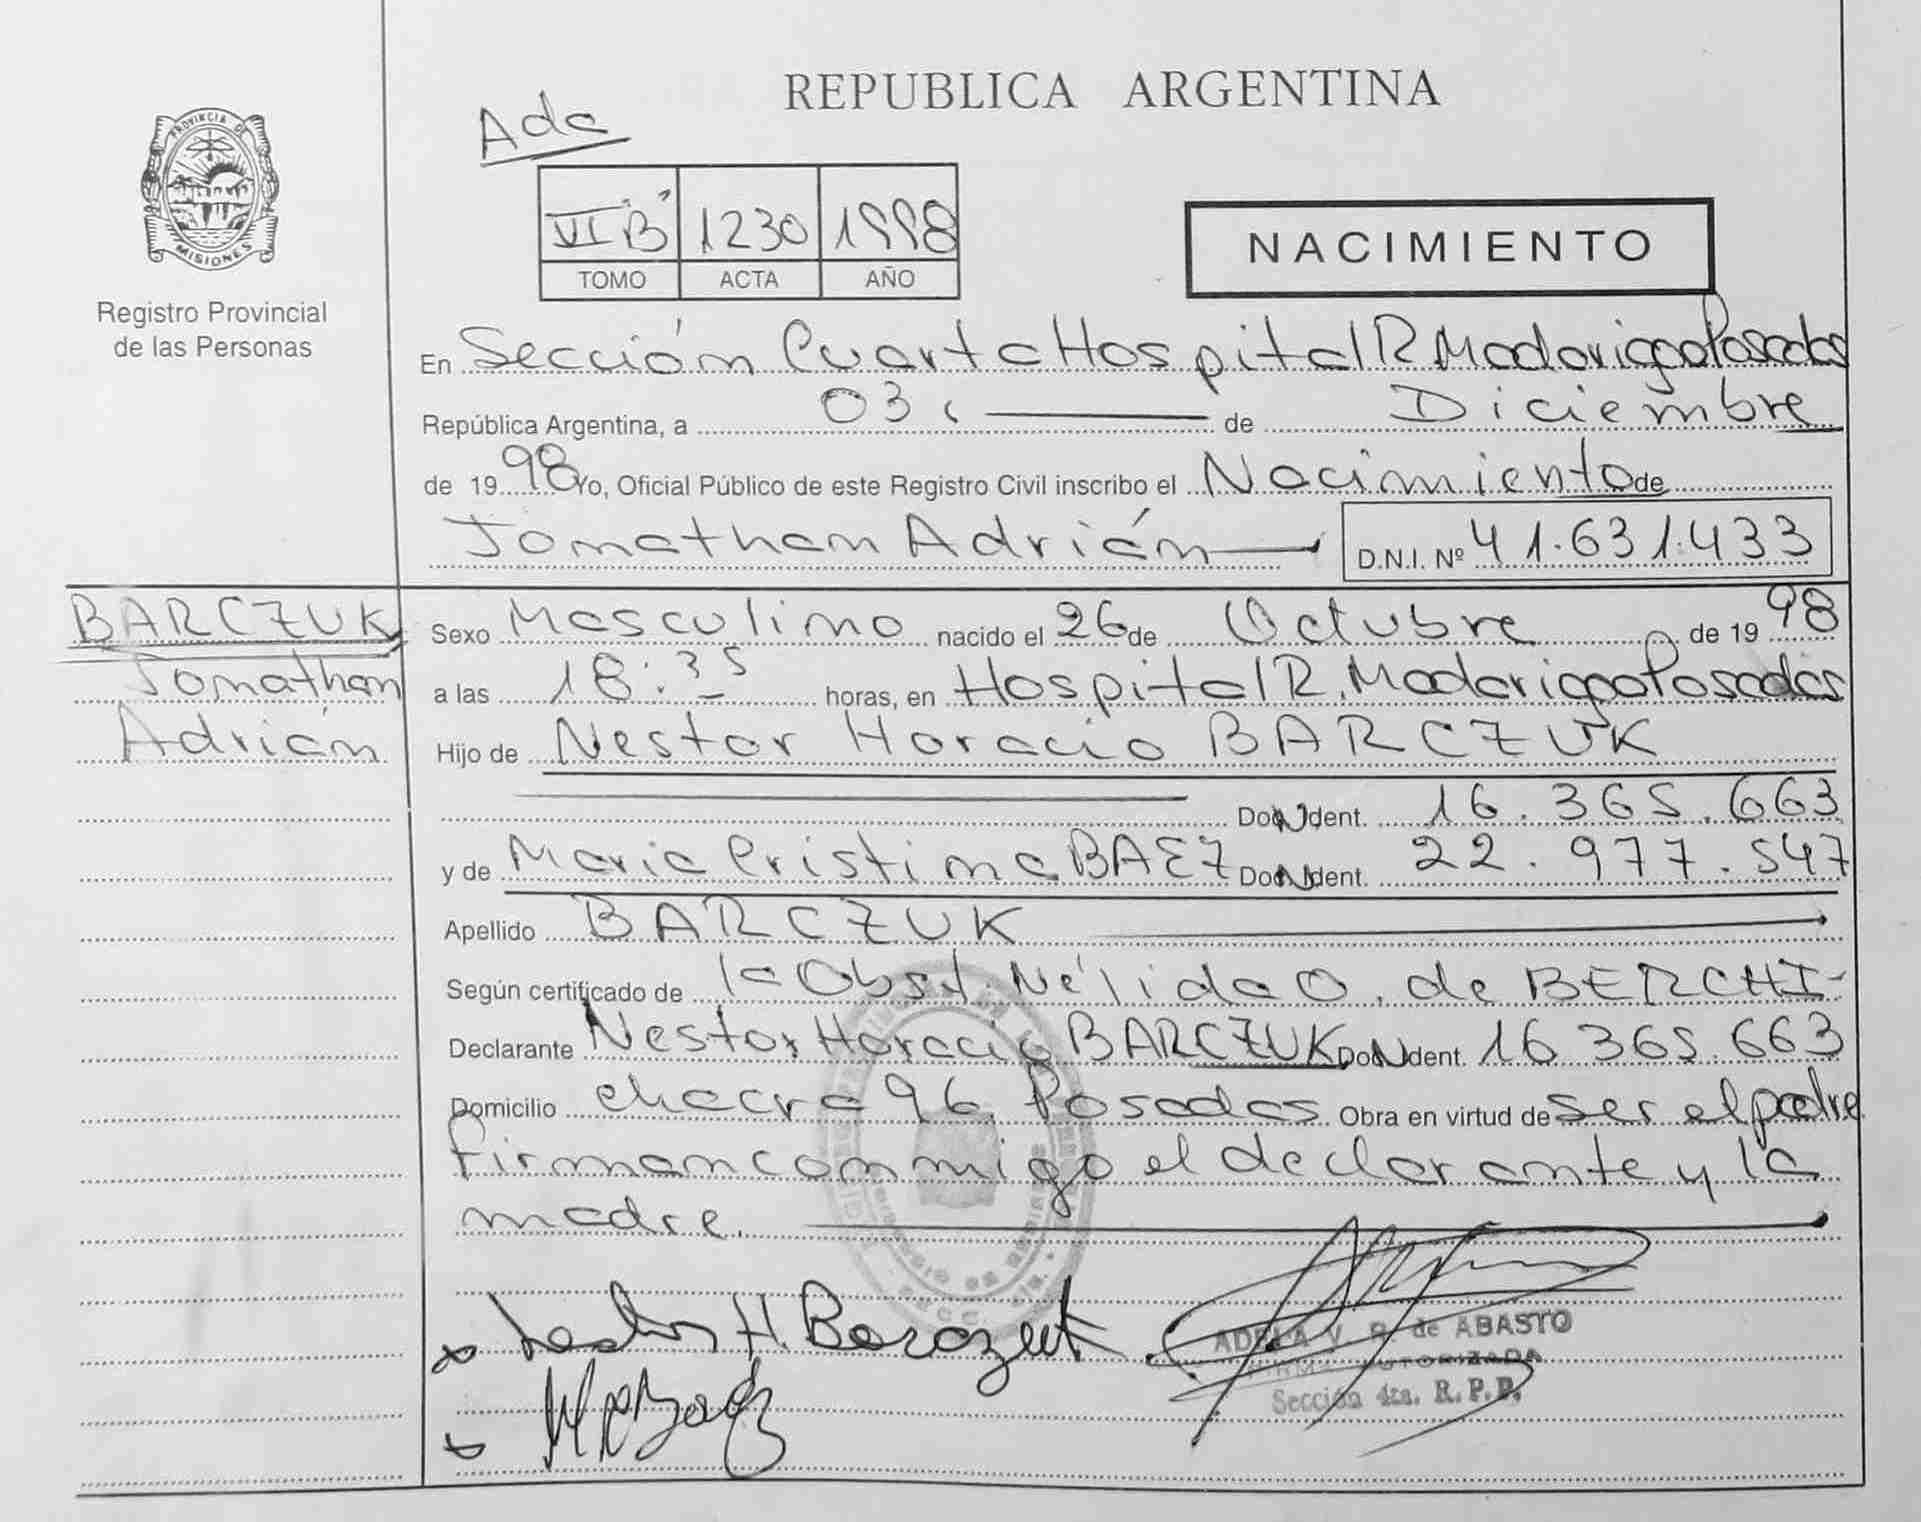 REPUBLICA ARGENTINA
Ada
PROVINCIA DE
MISIONES
VI B 1230 1998
TOMO ACTA AÑO
NACIMIENTO
Registro Provincial
de las Personas
En Sección Cuarta Hospital R. Madariaga Posadas
República Argentina, a 03, de Diciembre
de 1998 Yo, Oficial Público de este Registro Civil inscribo el Nacimiento de
Jonathan Adrián D.N.I. Nº 41.631.433
BARCZUK
Jonathan
Adrián
Sexo Masculino nacido el 26 de Octubre de 1998
a las 18:35 horas, en Hospital R. Madariaga Posadas
Hijo de Nestor Horacio BARCZUK
Doc. Ident. 16.365.663
y de Maria Cristina BAEZ Doc. Ident. 22.977.547
Apellido BARCZUK
Según certificado de la Obst. Nélida O. de BERCHI-
Declarante Nestor Horacio BARCZUK Doc. Ident. 16 365.663
Domicilio chacra 96 Posadas Obra en virtud de ser el padre
firman conmigo el declarante y la
madre.
H. Barczuk
Baez
ADELA V. R. de ABASTO
FIRMA AUTORIZADA
Sección 4ta. R. P. P.